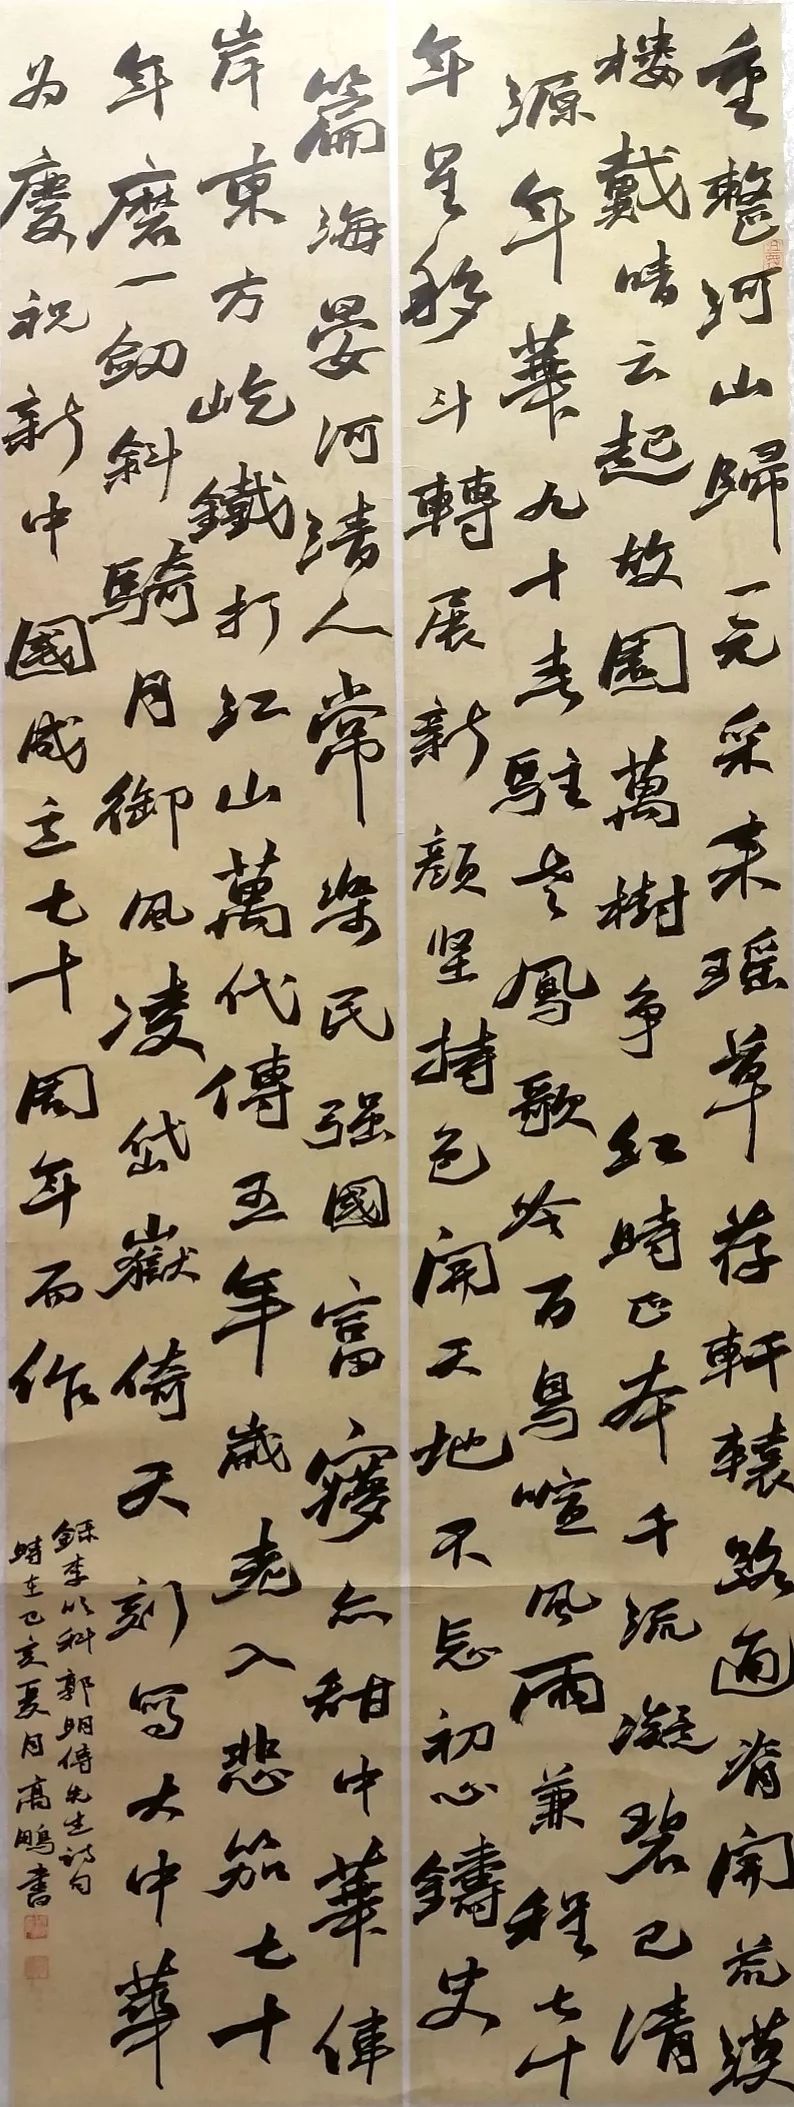 重整河山歸一元采来瑶草荐軒轅路通渭開荒漠
楼戴晴云起故園萬樹争红時正奔千流凝碧已清
源年年華九十春駐老鳳歌吟百鳥喧風雨兼程七十
年星移斗轉展新颜坚持包開天地不忘初心鑄史
篇海晏河清人常楽民强國富夢亦甜中華伟
岸東方屹鐵打红山萬代傳五年歲走入悲笳七十
年磨一劍斜騎月御風凌岱嶽倚天刻写大中華
为慶祝新中國成立七十周年而作
錄李以科郭明傳先生詩句
時在己亥夏月高鵬書